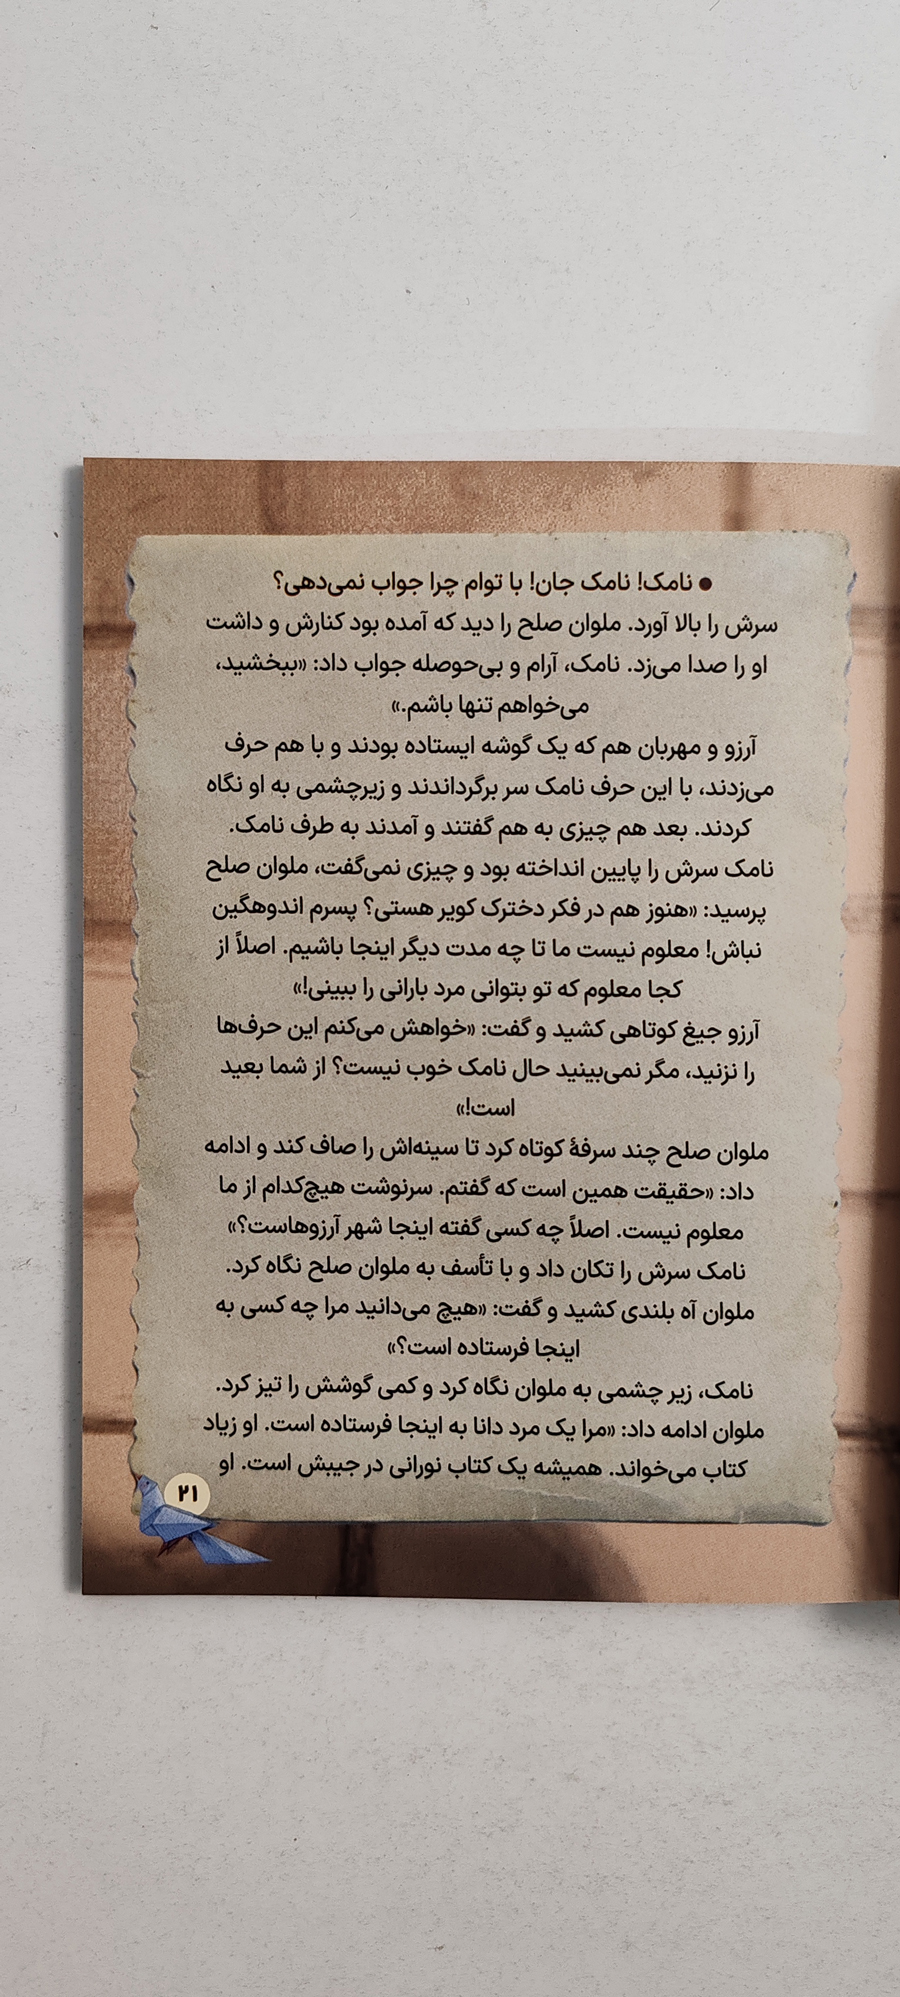 ● نامک! نامک جان! با توام چرا جواب نمی‌دهی؟
سرش را بالا آورد. ملوان صلح را دید که آمده بود کنارش و داشت
او را صدا می‌زد. نامک، آرام و بی‌حوصله جواب داد: «ببخشید،
می‌خواهم تنها باشم.»
آرزو و مهربان هم که یک گوشه ایستاده بودند و با هم حرف
می‌زدند، با این حرف نامک سر برگرداندند و زیرچشمی به او نگاه
کردند. بعد هم چیزی به هم گفتند و آمدند به طرف نامک.
نامک سرش را پایین انداخته بود و چیزی نمی‌گفت، ملوان صلح
پرسید: «هنوز هم در فکر دخترک کویر هستی؟ پسرم اندوهگین
نباش! معلوم نیست ما تا چه مدت دیگر اینجا باشیم. اصلاً از
کجا معلوم که تو بتوانی مرد بارانی را ببینی!»
آرزو جیغ کوتاهی کشید و گفت: «خواهش می‌کنم این حرف‌ها
را نزنید، مگر نمی‌بینید حال نامک خوب نیست؟ از شما بعید
است!»
ملوان صلح چند سرفهٔ کوتاه کرد تا سینه‌اش را صاف کند و ادامه
داد: «حقیقت همین است که گفتم. سرنوشت هیچ‌کدام از ما
معلوم نیست. اصلاً چه کسی گفته اینجا شهر آرزوهاست؟»
نامک سرش را تکان داد و با تأسف به ملوان صلح نگاه کرد.
ملوان آه بلندی کشید و گفت: «هیچ می‌دانید مرا چه کسی به
اینجا فرستاده است؟»
نامک، زیر چشمی به ملوان نگاه کرد و کمی گوشش را تیز کرد.
ملوان ادامه داد: «مرا یک مرد دانا به اینجا فرستاده است. او زیاد
کتاب می‌خواند. همیشه یک کتاب نورانی در جیبش است. او
۲۱